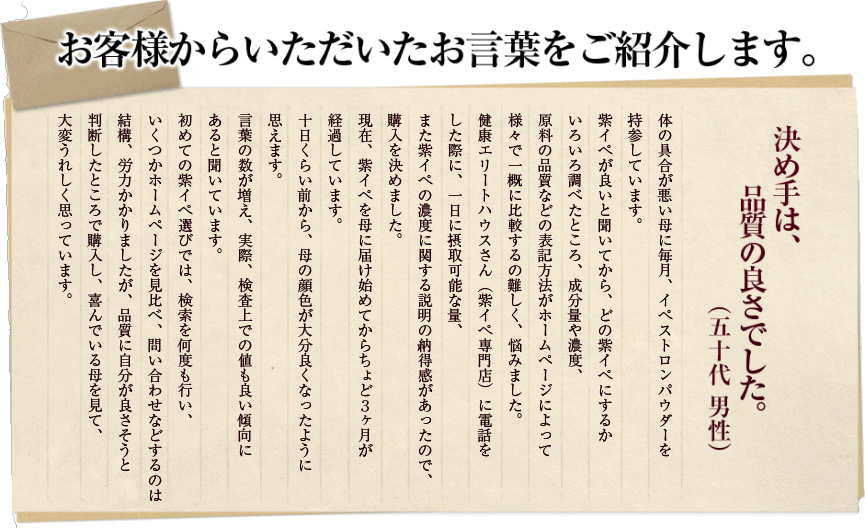 お客様からいただいたお言葉をご紹介します。
決め手は、
品質の良さでした。
（五十代 男性）
体の具合が悪い母に毎月、イペストロンパウダーを
持参しています。
紫イペが良いと聞いてから、どの紫イペにするか
いろいろ調べたところ、成分量や濃度、
原料の品質などの表記方法がホームページによって
様々で一概に比較するの難しく、悩みました。
健康エリートハウスさん（紫イペ専門店）に電話を
した際に、一日に摂取可能な量、
また紫イペの濃度に関する説明の納得感があったので、
購入を決めました。
現在、紫イペを母に届け始めてからちょど３ヶ月が
経過しています。
十日くらい前から、母の顔色が大分良くなったように
思えます。
言葉の数が増え、実際、検査上での値も良い傾向に
あると聞いています。
初めての紫イペ選びでは、検索を何度も行い、
いくつかホームページを見比べ、問い合わせなどするのは
結構、労力かかりましたが、品質に自分が良さそうと
判断したところで購入し、喜んでいる母を見て、
大変うれしく思っています。